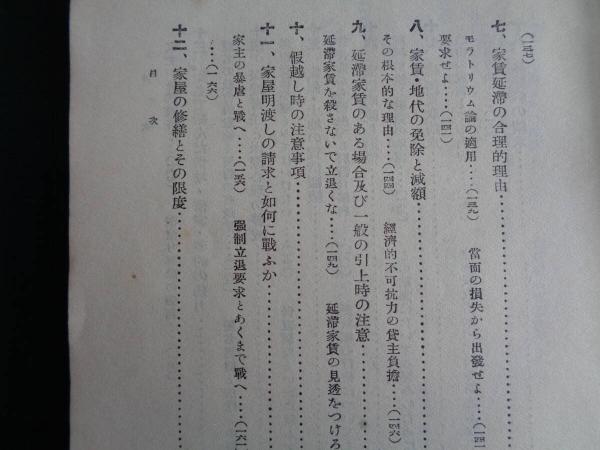 （一三七）
七、家賃延滯の合理的理由……………………
モラトリウム論の適用‥‥（一三九）　當面の損失から出發せよ‥‥（一四一
要求せよ‥‥（一四二）
八、家賃・地代の免除と減額……………………
その根本的な理由‥‥（一四四）　經濟的不可抗力の貸主負擔‥‥（一四六）
九、延滯家賃のある場合及び一般の引上時の注意…………
延滯家賃を殺さないで立退くな‥‥（一四九）　延滯家賃の見透をつけろ
十、假越し時の注意事項……………………
十一、家屋明渡しの請求と如何に戰ふか……………………
家主の暴虐と戰へ‥‥（一五六）　強制立退要求とあくまで戰へ‥‥（一六一
‥‥（一六六）
十二、家屋の修繕とその限度……………………
目次